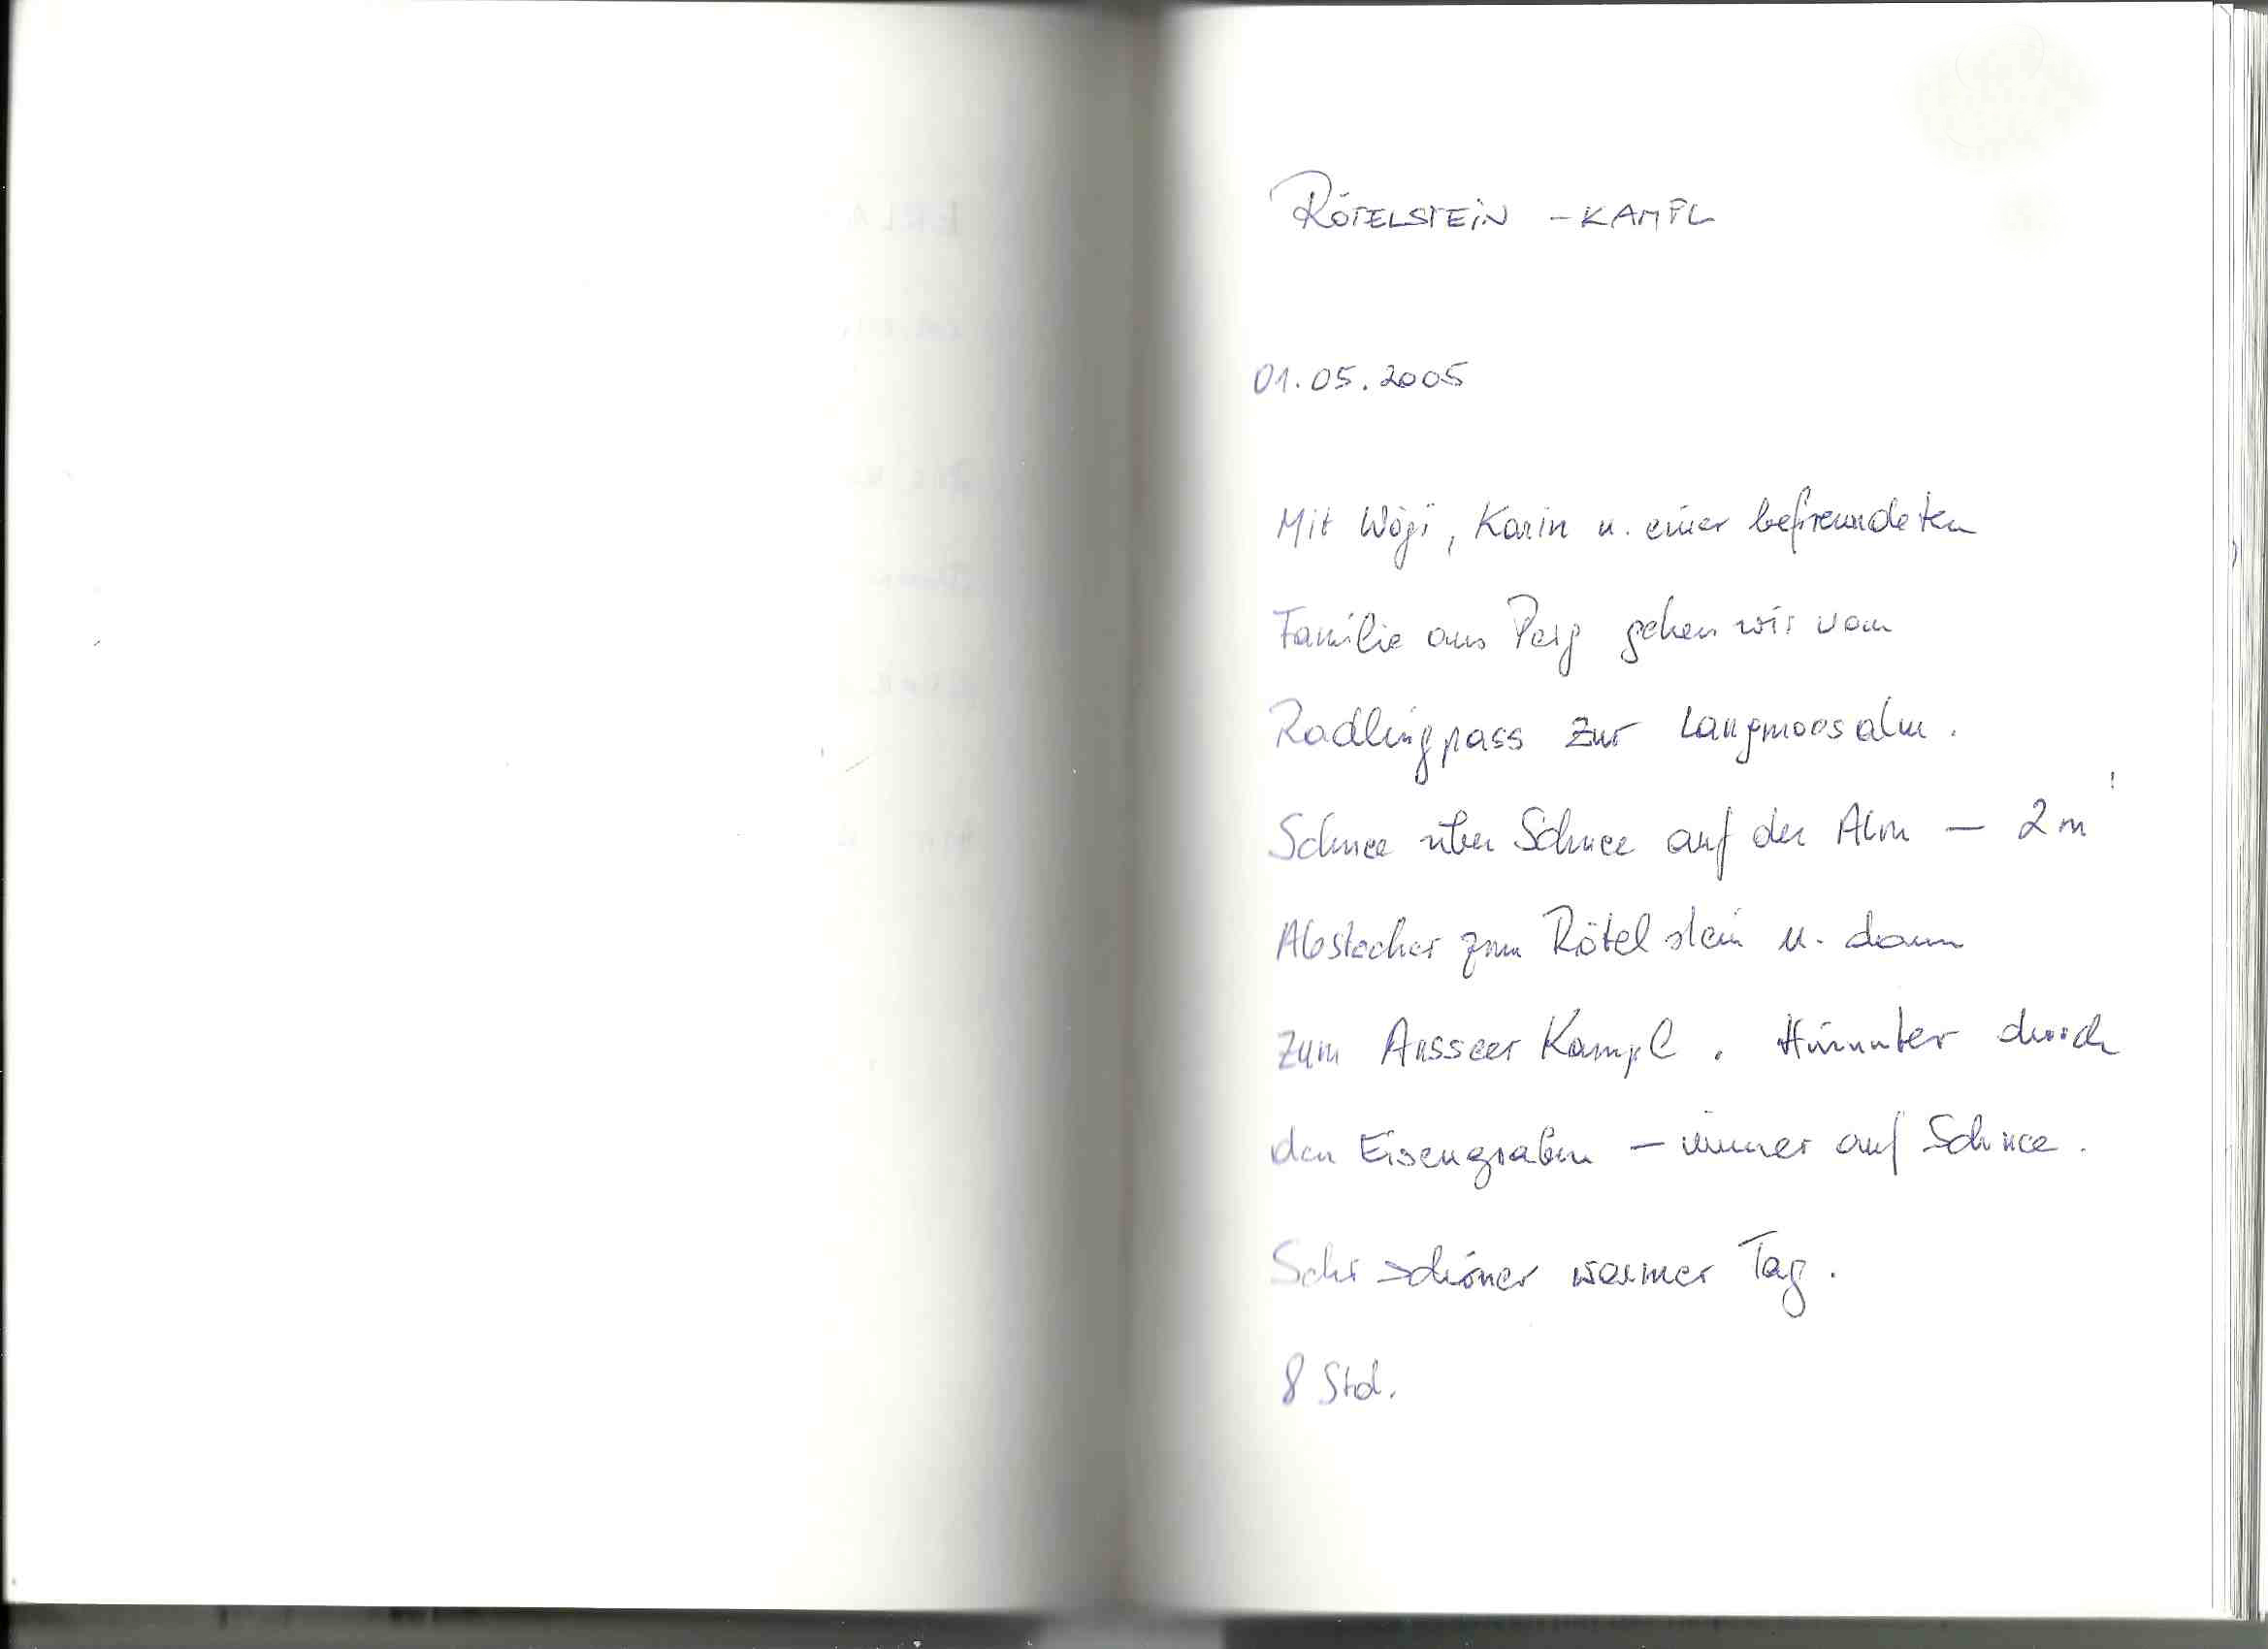 RÖTELSTEIN - KAMPL
01.05.2005
Mit Wögi, Karin u. einer befreundeten
Familie aus Perg gehen wir vom
Radlingpass zur Langmoosalm.
Schnee über Schnee auf der Alm — 2m!
Abstecher zum Rötelstein u. dann
zum Ausseer Kampl. Hinunter durch
den Eisengraben — immer auf Schnee.
Sehr schöner warmer Tag.
8 Std.